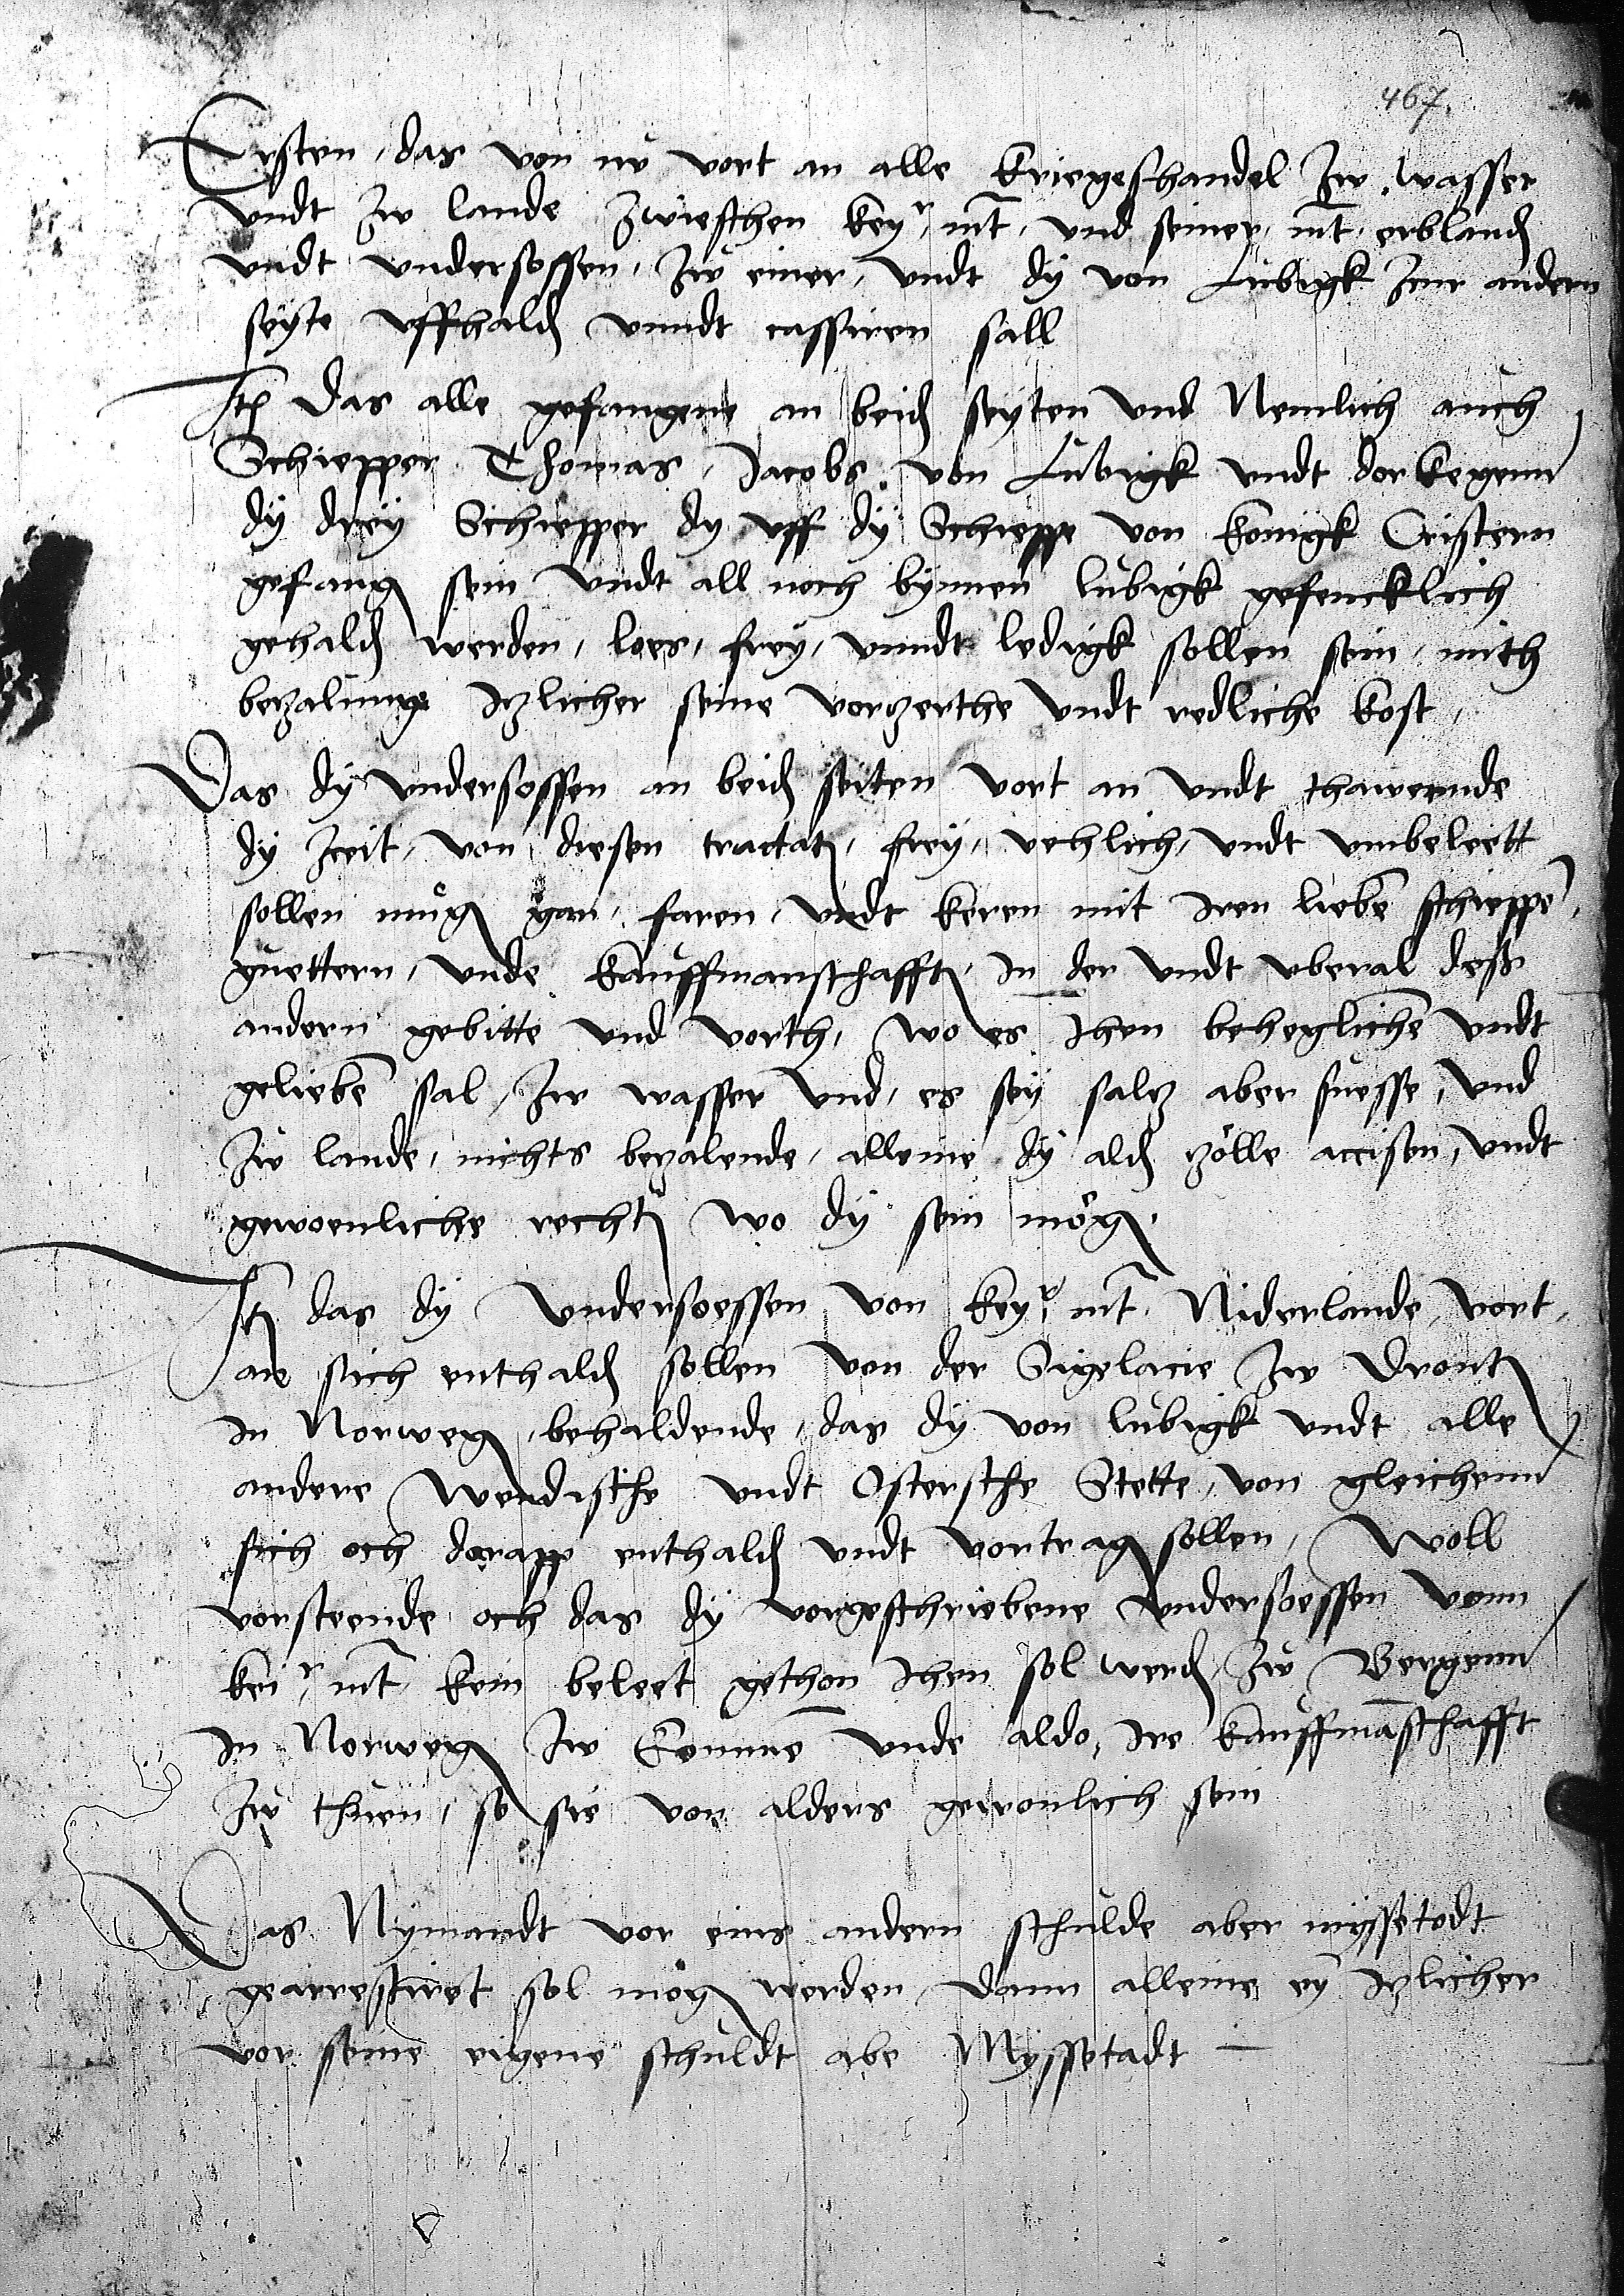 467.
Ersten, das von nu vort an alle kriegeshandel zw wasser
vndt zw lande zwieschen key.r mt. vnd seiner mt. erbland
vndt vndersossen, zw einer, vndt dy von Lubigk zur andern
seyte vffhald vnndt cassiren sall
It das alle gefangene an beid seyten vnd Nemlich auch
Schiepper Thomas, Jacobs von Lubigk vndt dorkegenn
dy drey Schiepper dy vff dy Schieppe von konigk Cristern
gefang sein vndt all noch bynnen lubigk gefencklich
gehald werden, loes, frey, vnndt ledigk sollen sein, mith
betzalung itzlicher seine vortzerthe vndt redliche kost,
Das dy vndersossen an beid seiten vort an vndt thawernde
dy zeit, von diesen tractat, frey, vehlich, vndt vmbeleett
sollen mug gan, faren, vndt keren mit iren liebe schieppe,
guettern, vnde kauffmanschafft, in der vndt vberal desz
andern gebitte vnd vorth, wo es ihen behegliche vndt
geliebe sal, zw wasser vnd, es sey saltz aber suesse, vnd
zw lande, nichts betzalende, alleine dy ald tzolle accisen, vndt
gewoenliche recht wo dy sein mog.
It das dy vndersoessen von key.r mt. Niderlande, vort,
an sich enthald sollen von der Sigelacie zw Dront
in Norweg, behaldende, das dy von lubigk vndt alle
andere Wendische vndt Ostersche Stette, von gleichenn
sich och dorapp enthald vndt vortrag sollen, Woll
vorsteende och das dy vorgeschriebene vndersoessen vonn
kei.r mt. kein beleet gethon ihen sol werd, zw Bergenn
in Norweg zw komme vnde aldo, ire kauffmaschafft
zw thuen, so sie von alders gewonlich sein
Das Nymandt vor eins andern schulde aber myssetodt
gearrestiret sol mog werden, dann alleine ey itzlicher
vor seine eigene schuldt abe Myssetadt